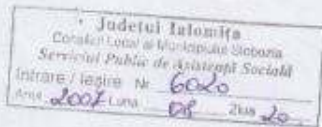 Judetul Ialomița
Consiliul Local al Municipiului Slobozia
Serviciul Public de Asistență Socială
Intrare / Ieșire Nr 6020
Anul 2007 Luna 08 Ziua 20